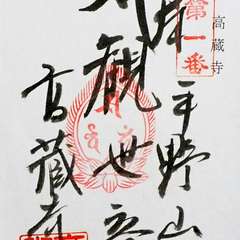 高蔵寺
第一番
平野山
観世音
高蔵寺